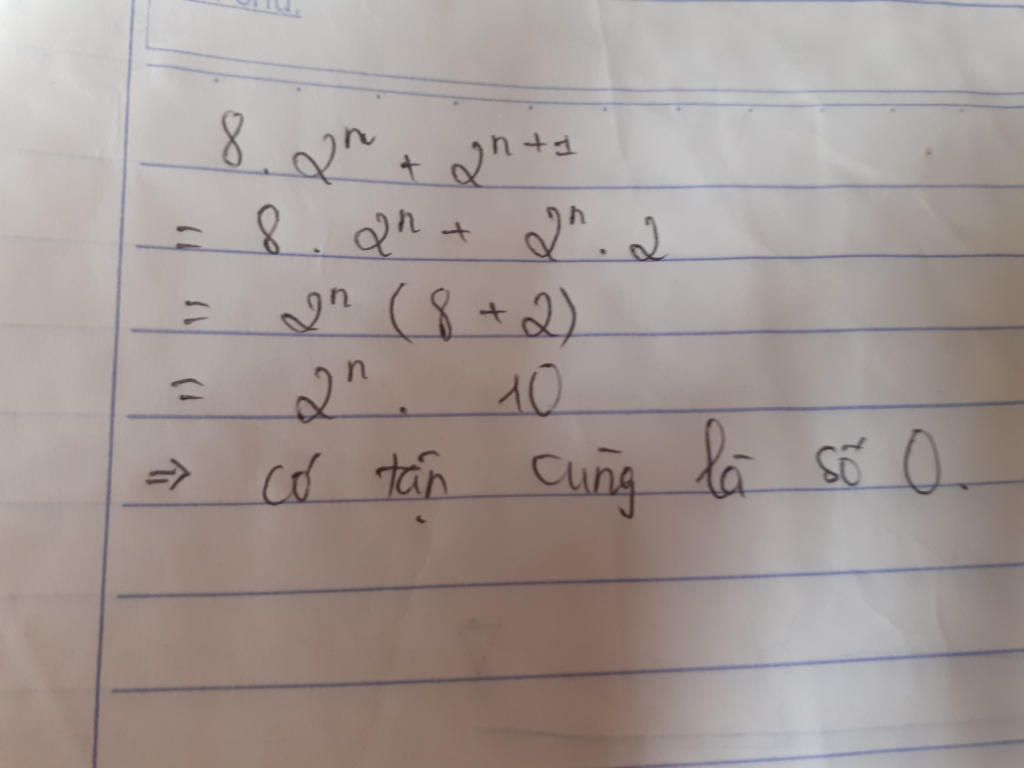 8 . 2ⁿ + 2ⁿ⁺¹
= 8 . 2ⁿ + 2ⁿ . 2
= 2ⁿ (8 + 2)
= 2ⁿ . 10
⇒ có tận cùng là số 0.